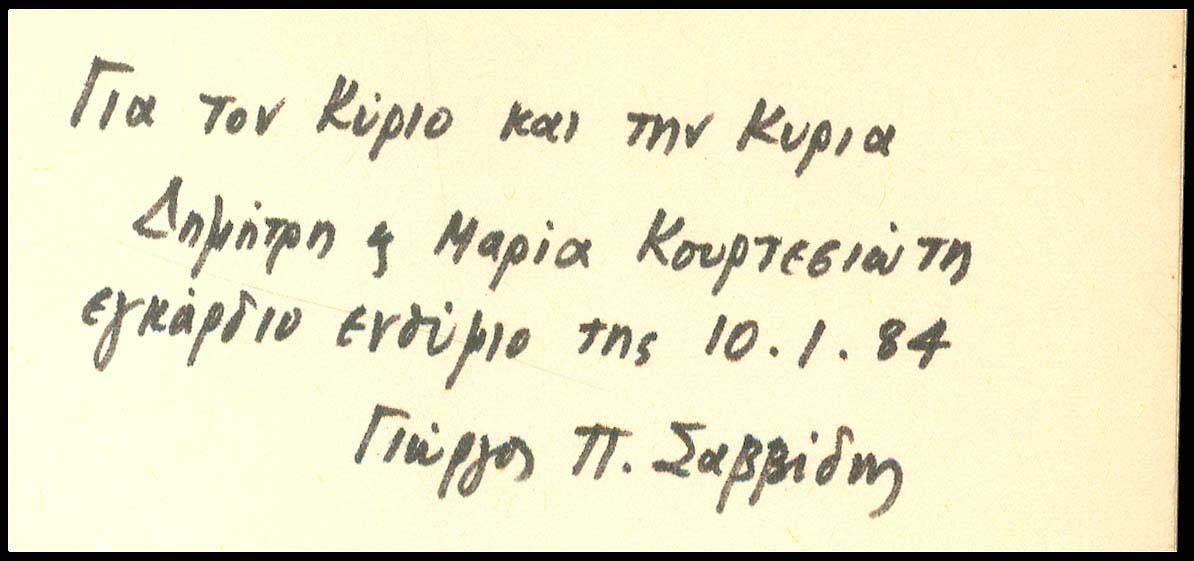 Για τον Κύριο και την Κυρια
Δημήτρη ϗ Μαρία Κουρτεσιώτη
εγκάρδιο ενθύμιο της 10.1.84
Γιώργος Π. Σαββίδης